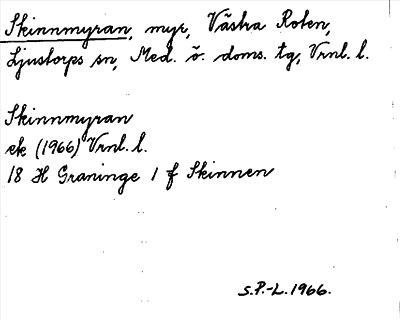 Skinnmyran, myr, Västra Roten,
Ljustorps sn, Med. ö. doms. tg, Vrnl. l.
Skinnmyran
ek (1966) Vrnl. l.
18 H Graninge 1 f Skinnen
S.P.-L. 1966.